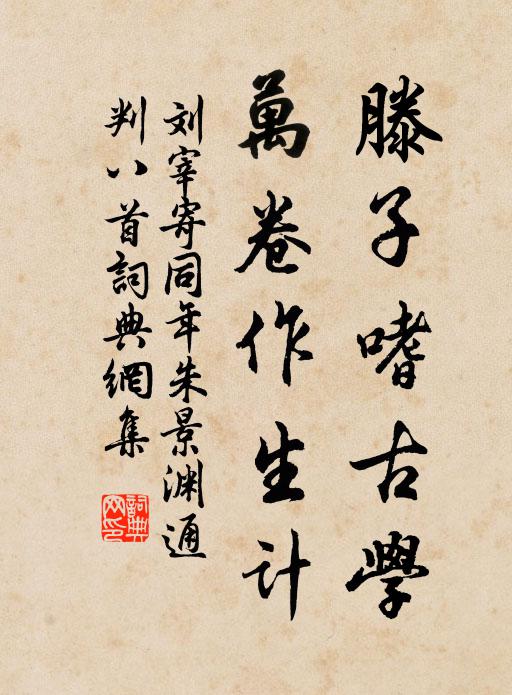 滕子嗜古學
萬卷作生計
刘宰寄同年朱景渊通
判八首詞典網集
詞典网印